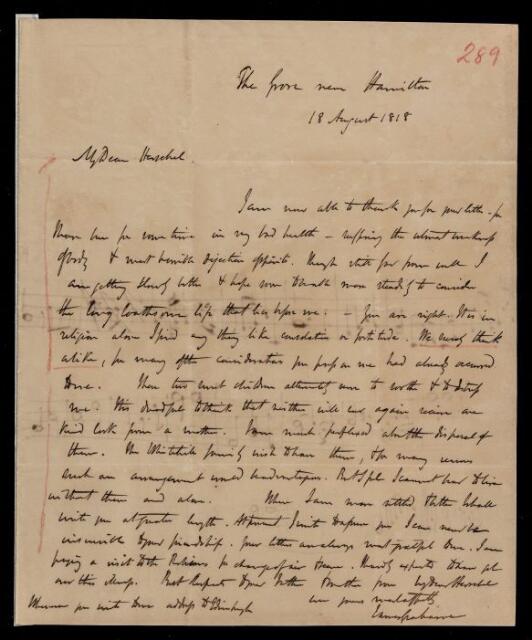 289
The Grove near Hamilton
18 August 1818
My Dear Herschel.
I am now able to thank you for your letter - for
I have been for some time in very bad health - suffering the utmost weakness
of body & most horrible dejection of spirits. Though still far from well I
am getting slowly better & hope soon to be able more steadily to consider
the long loathsome life that lies before me. - You are right. It is in
religion alone I find any thing like consolation or fortitude. We surely think
alike, for many of the considerations you propose me had already occurred
to me. These two sweet children alternately serve to soothe & to distress
me. It is dreadful to think that neither will ever again receive one
kind look from a mother. I am much perplexed about the disposal of
them. The family wish to have them, & for many reasons
such an arrangement would be advantageous. But I feel I cannot bear to live
without them and alone. When I am more settled I shall
write you at greater length. At present I write to assure you I can never be
insensible to your friendship. Your letters are always most grateful to me. I am
paying a visit to the Relations for change of air & scene. Hardly expects to have
over this. Best Respects to your Father & Mother from My Dear Herschel
ever yours
Whenever you write to me address to Edinburgh
James Grahame